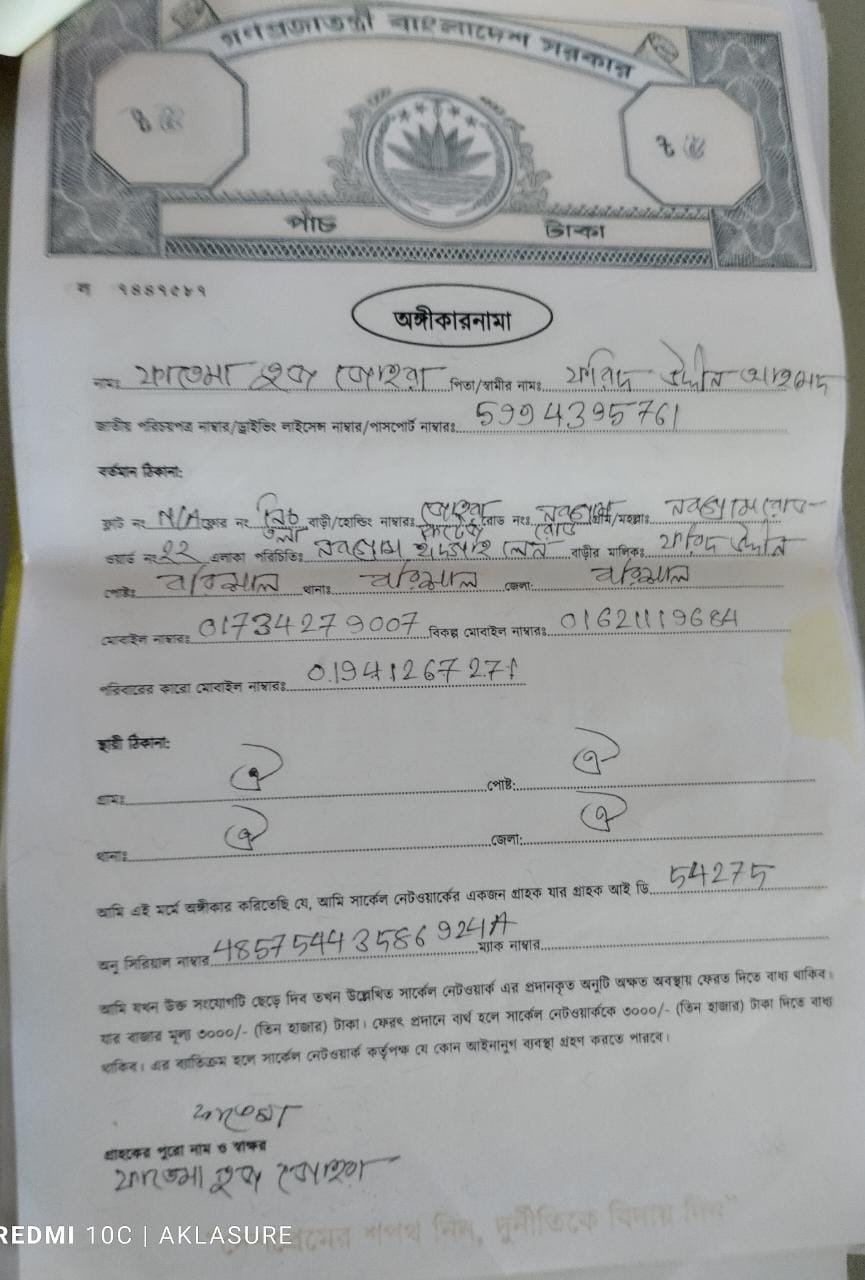 গণপ্রজাতন্ত্রী বাংলাদেশ সরকার
পাঁচ টাকা
অঙ্গীকারনামা
নামঃ ফাতেমা তুজ জোহরা পিতা/স্বামীর নামঃ ফরিদ উদ্দীন আহমেদ
জাতীয় পরিচয়পত্র নাম্বার/ড্রাইভিং লাইসেন্স নাম্বার/পাসপোর্ট নাম্বারঃ 5994395761
বর্তমান ঠিকানা:
ফ্লাট নং N/A ফ্লোর নং নিচ তলা বাড়ী/হোল্ডিং নাম্বারঃ জোহরা রোড নংঃ নবগ্রাম রোড গ্রাম/মহল্লাঃ নবগ্রাম রোড
ওয়ার্ড নং 22 এলাকা পরিচিতিঃ নবগ্রাম লেন বাড়ীর মালিকঃ ফরিদ উদ্দীন
পোষ্টঃ বরিশাল থানাঃ বরিশাল জেলা: বরিশাল
মোবাইল নাম্বারঃ 01734279007 বিকল্প মোবাইল নাম্বারঃ 01621119684
পরিবারের কারো মোবাইল নাম্বারঃ 01941267271
স্থায়ী ঠিকানা:
গ্রামঃ ঐ পোষ্ট: ঐ
থানাঃ ঐ জেলা: ঐ
আমি এই মর্মে অঙ্গীকার করিতেছি যে, আমি সার্কেল নেটওয়ার্কের একজন গ্রাহক যার গ্রাহক আই ডি 54275
অনু সিরিয়াল নাম্বার 485754443586924A ম্যাক নাম্বার
আমি যখন উক্ত সংযোগটি ছেড়ে দিব তখন উল্লেখিত সার্কেল নেটওয়ার্ক এর প্রদানকৃত অনুটি অক্ষত অবস্থায় ফেরত দিতে বাধ্য থাকিব।
যার বাজার মূল্য ৩০০০/- (তিন হাজার) টাকা। ফেরৎ প্রদানে ব্যর্থ হলে সার্কেল নেটওয়ার্ককে ৩০০০/- (তিন হাজার) টাকা দিতে বাধ্য
থাকিব। এর ব্যতিক্রম হলে সার্কেল নেটওয়ার্ক কর্তৃপক্ষ যে কোন আইনানুগ ব্যবস্থা গ্রহণ করতে পারবে।
ফাতেমা
গ্রাহকের পুরো নাম ও স্বাক্ষর
ফাতেমা তুজ জোহরা
শপথ নিন, দুর্নীতিকে বিদায় দিন"
REDMI 10C | AKLASURE